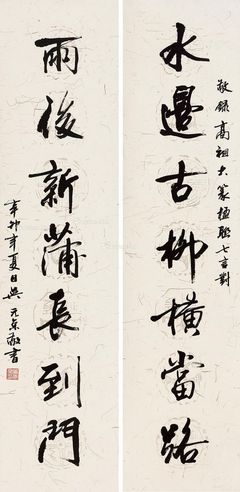 敬錄高祖大篆楹聯七言對
水邊古柳橫當路
雨後新蒲長到門
辛卯年夏日吳元京敬書